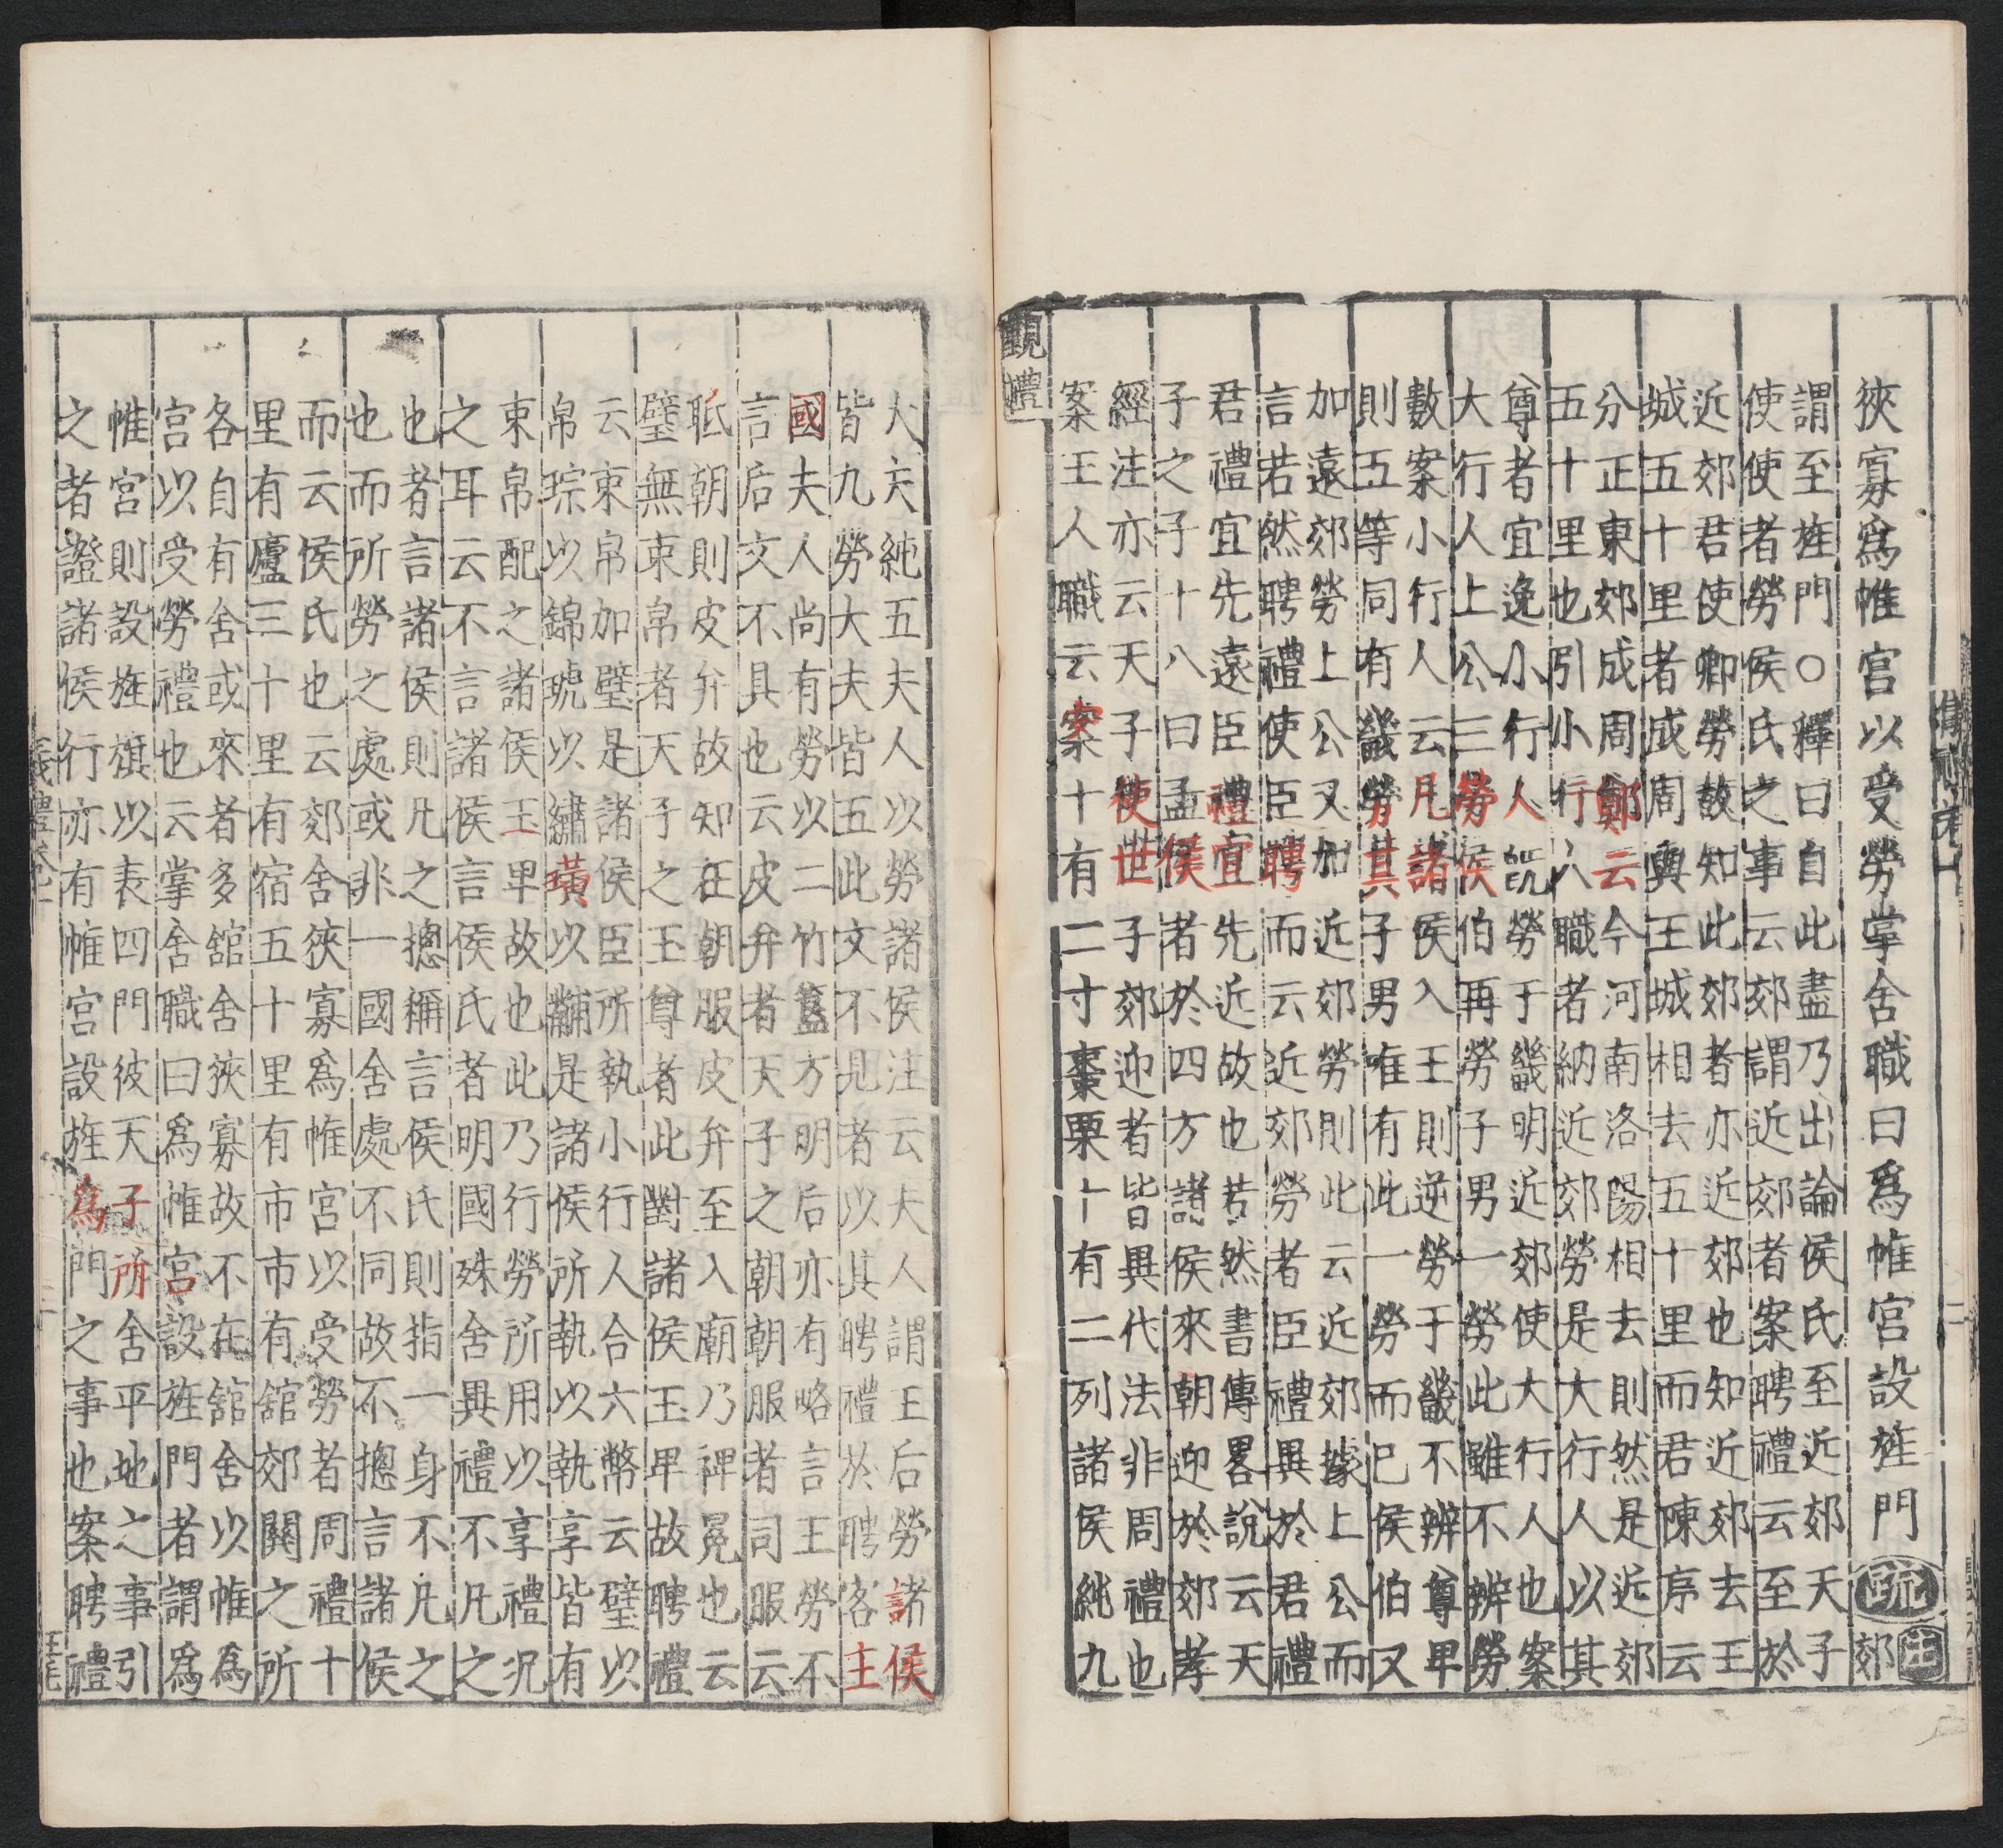 狹寡爲帷宮以受勞掌舍職曰爲帷宮設旌門
疏
注
郊
謂至旌門○釋曰自此盡乃出論侯氏至近郊天子
使使者勞侯氏之事云郊謂近郊者案聘禮云至於
近郊君使卿勞故知此郊者亦近郊也知近郊去王
城五十里者成周與王城相去五十里而君陳序云
分正東郊成周鄭云今河南洛陽相去則然是近郊
五十里也引小行人職者納近郊勞是大行人以其
尊者宜逸小行人既勞于畿明近郊使大行人也案
大行人上公三勞侯伯再勞子男一勞此雖不辨勞
數案小行人云凡諸侯入王則逆勞于畿不辨尊卑
則五等同有畿勞其子男唯有此一勞而已侯伯又
加遠郊勞上公又加近郊勞則此云近郊據上公而
言若然聘禮使臣聘而云近郊勞者臣禮異於君禮
君禮宜先遠臣禮宜先近故也若然書傳畧說云天
子之子十八曰孟侯者於四方諸侯來朝迎於郊孝
經注亦云天子使世子郊迎者皆異代法非周禮也
案玉人職云案十有二寸棗栗十有二列諸侯純九
覲禮
大夫純五夫人以勞諸侯注云夫人謂王后勞諸侯
皆九勞大夫皆五此文不見者以其聘禮於聘客主
國夫人尚有勞以二竹簋方明后亦有略言王勞不
言后文不具也云皮弁者天子之朝朝服者司服云
眡朝則皮弁故知在朝服皮弁至入廟乃裨冕也云
璧無束帛者天子之玉尊者此對諸侯玉卑故聘禮
云束帛加璧是諸侯臣所執小行人合六幣云璧以
帛琮以錦琥以繡璜以黼是諸侯所執以執享皆有
束帛配之諸侯玉卑故也此乃行勞所用以享禮況
之耳云不言諸侯言侯氏者明國殊舍異禮不凡之
也者言諸侯則凡之揔稱言侯氏則指一身不凡之
也而所勞之處或非一國舍處不同故不揔言諸侯
而云侯氏也云郊舍狹寡爲帷宮以受勞者周禮十
里有廬三十里有宿五十里有市市有舘郊關之所
各自有舍或來者多舘舍狹寡故不在舘舍以帷爲
宮以受勞禮也云掌舍職曰爲帷宮設旌門者謂爲
帷宮則設旌旗以表四門彼天子所舍平地之事引
之者證諸侯行亦有帷宮設旌爲門之事也案聘禮